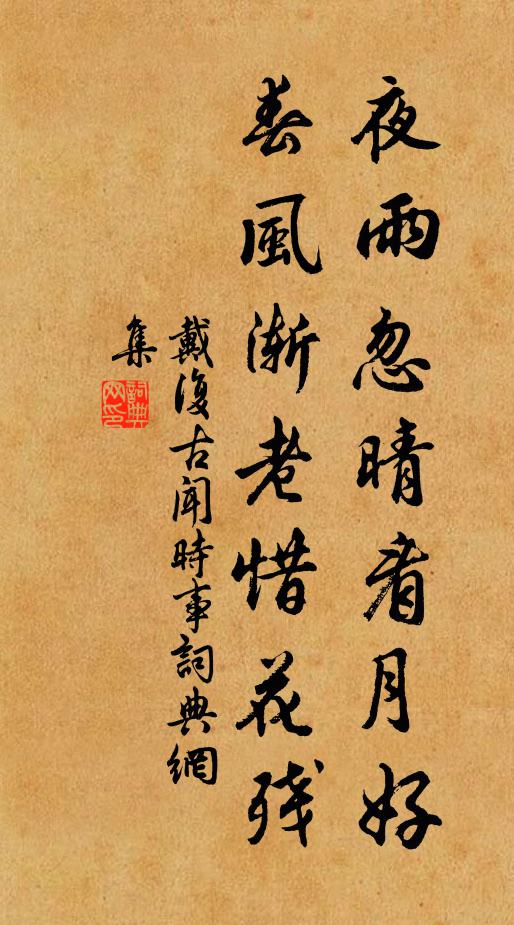 夜雨忽晴看月好
春風漸老惜花殘
戴復古聞時事詞典網
集
詞典
网印